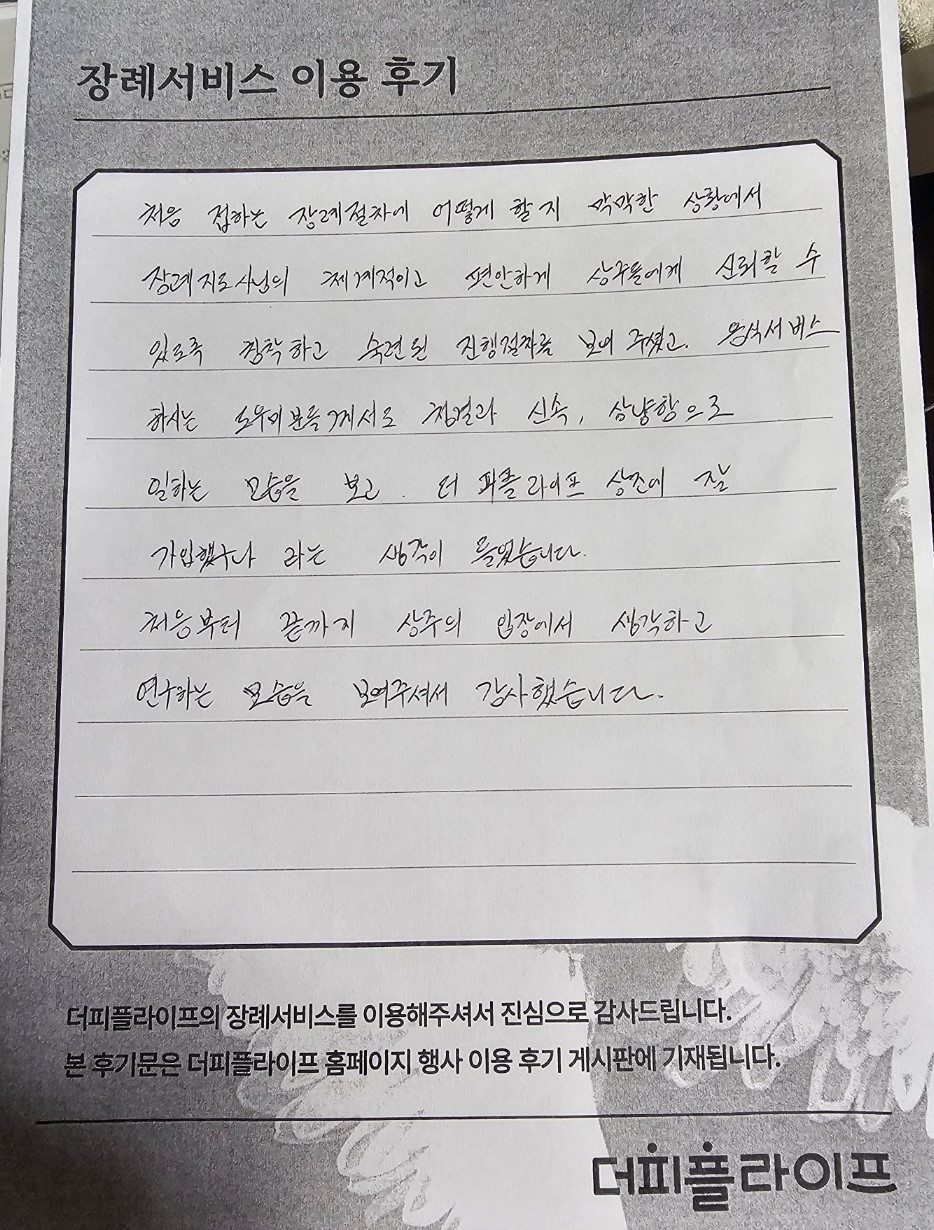 장례서비스 이용 후기
처음 접하는 장례절차에 어떻게 할지 막막한 상황에서
장례지도사님의 체계적이고 편안하게 상주들에게 신뢰할 수
있도록 정확하고 숙련된 진행절차를 보여 주셨고. 음식서비스
하시는 도우미분들께서도 청결과 신속, 상냥함으로
일하는 모습을 보고. 더 피플라이프 상조에 잘
가입했구나 라는 생각이 들었습니다.
처음부터 끝까지 상주의 입장에서 생각하고
연구하는 모습을 보여주셔서 감사했습니다.
더피플라이프의 장례서비스를 이용해주셔서 진심으로 감사드립니다.
본 후기문은 더피플라이프 홈페이지 행사 이용 후기 게시판에 기재됩니다.
더피플라이프